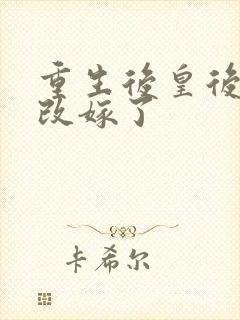 重生後皇後
改嫁了
卡希尔